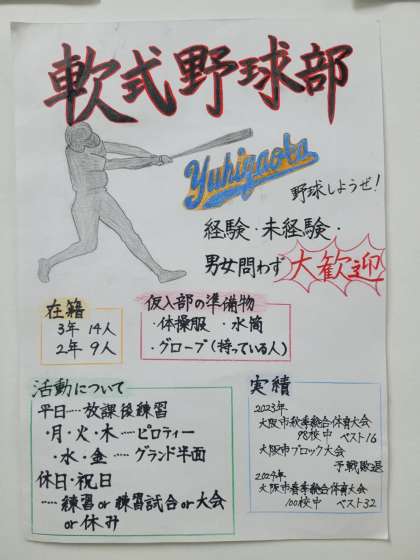 軟式野球部
Yuhigaoka
野球しようぜ!
経験・未経験・
男女問わず 大歓迎
在籍
3年 14人
2年 9人
仮入部の準備物
・体操服 ・水筒
・グローブ(持っている人)
活動について
平日‥‥放課後練習
・月・火・木‥‥ピロティー
・水・金‥‥グランド半面
休日・祝日
‥‥練習or練習試合or大会
or休み
実績
2023年
大阪市秋季総合体育大会
98校中 ベスト16
大阪市ブロック大会
予戦敗退
2024年
大阪市春季総合体育大会
100校中 ベスト32